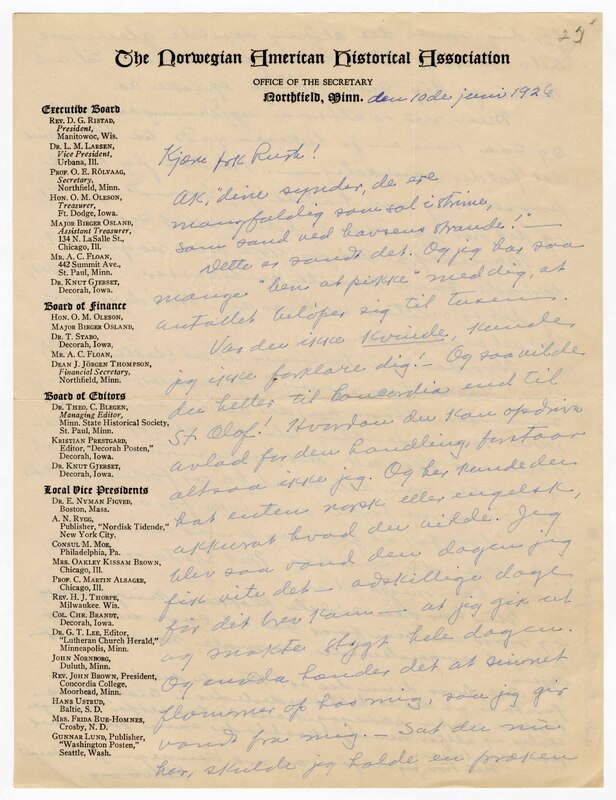 25
The Norwegian American Historical Association
OFFICE OF THE SECRETARY
Northfield, Minn. den 10de juni 1926
Executive Board
REV. D. G. RISTAD,
President,
Manitowoc, Wis.
DR. L. M. LARSEN,
Vice President,
Urbana, Ill.
PROF. O. E. RÖLVAAG,
Secretary,
Northfield, Minn.
HON. O. M. OLESON,
Treasurer,
Ft. Dodge, Iowa.
MAJOR BIRGER OSLAND,
Assistant Treasurer,
134 N. LaSalle St.,
Chicago, Ill.
MR. A. C. FLOAN,
442 Summit Ave.,
St. Paul, Minn.
DR. KNUT GJERSET,
Decorah, Iowa.
Board of Finance
HON. O. M. OLESON,
MAJOR BIRGER OSLAND,
DR. T. STABO,
Decorah, Iowa.
MR. A. C. FLOAN,
DEAN J. JÖRGEN THOMPSON,
Financial Secretary,
Northfield, Minn.
Board of Editors
DR. THEO. C. BLEGEN,
Managing Editor,
Minn. State Historical Society,
St. Paul, Minn.
KRISTIAN PRESTGARD,
Editor, "Decorah Posten,"
Decorah, Iowa.
DR. KNUT GJERSET,
Decorah, Iowa.
Local Vice Presidents
DR. E. NYMAN FIGVED,
Boston, Mass.
A. N. RYGG,
Publisher, "Nordisk Tidende,"
New York City.
CONSUL M. MOE,
Philadelphia, Pa.
MRS. OAKLEY KISSAM BROWN,
Chicago, Ill.
PROF. C. MARTIN ALSAGER,
Chicago, Ill.
REV. H. J. THORPE,
Milwaukee. Wis.
COL. CHR. BRANDT,
Decorah, Iowa.
DR. G. T. LEE, Editor,
"Lutheran Church Herald,"
Minneapolis, Minn.
JOHN NORNBORG,
Duluth, Minn.
REV. JOHN BROWN, President,
Concordia College,
Moorhead, Minn.
HANS USTRUD,
Baltic, S. D.
MRS. FRIDA BUE-HOMNES,
Crosby, N. D.
GUNNAR LUND, Publisher,
"Washington Posten,"
Seattle, Wash.
Kjære frk Rusth!
Ak, "dine synder, de ere
mangfoldig som sol i strime,
som sand ved havsens strande!" —
Dette er sandt det. Og jeg har saa
mange "ben at pikke" med dig, at
antallet beløper sig til tusen.
Var du ikke kvinde, kunde
jeg ikke forklare dig! — Og saa vilde
du heller til Concordia end til
St Olaf! Hvordan du kan opdrive
avlad for den handling, forstaar
altsaa ikke jeg. Og her kunde du
hat enten norsk eller engelsk,
akkurat hvad du vilde. Jeg
blev saa vond den dagen jeg
fik vite det — adskillige dage
før dit brev kam — at jeg gik ut
og snakte stygt hele dagen.
Og endda hænder det at sinnet
flommer op hos mig, saa jeg gir
vondt fra mig. — Sat du nu
her, skulde jeg holde en præken